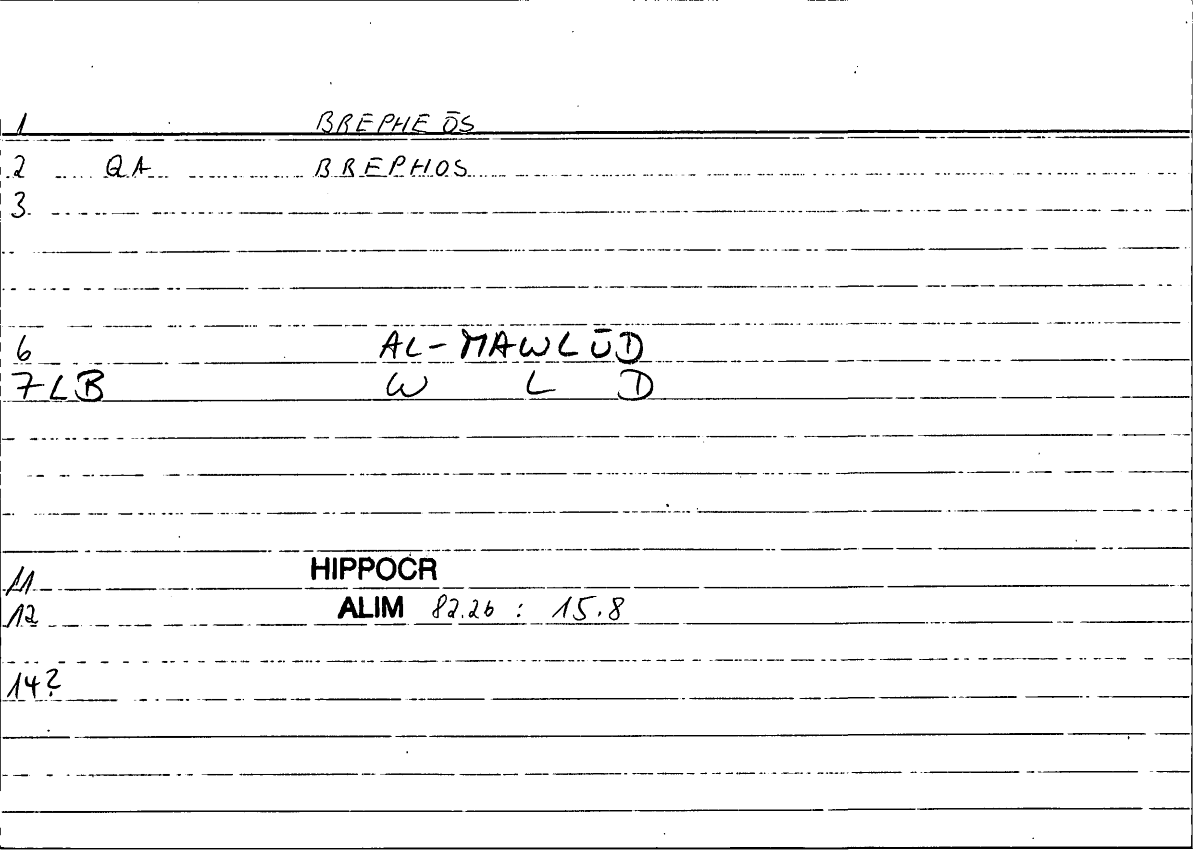 1 BREPHEŌS
2 QA BREPHOS
3
6 AL-MAWLŪD
7LB W L D
11 HIPPOCR
12 ALIM 82.26 : 15.8
14?